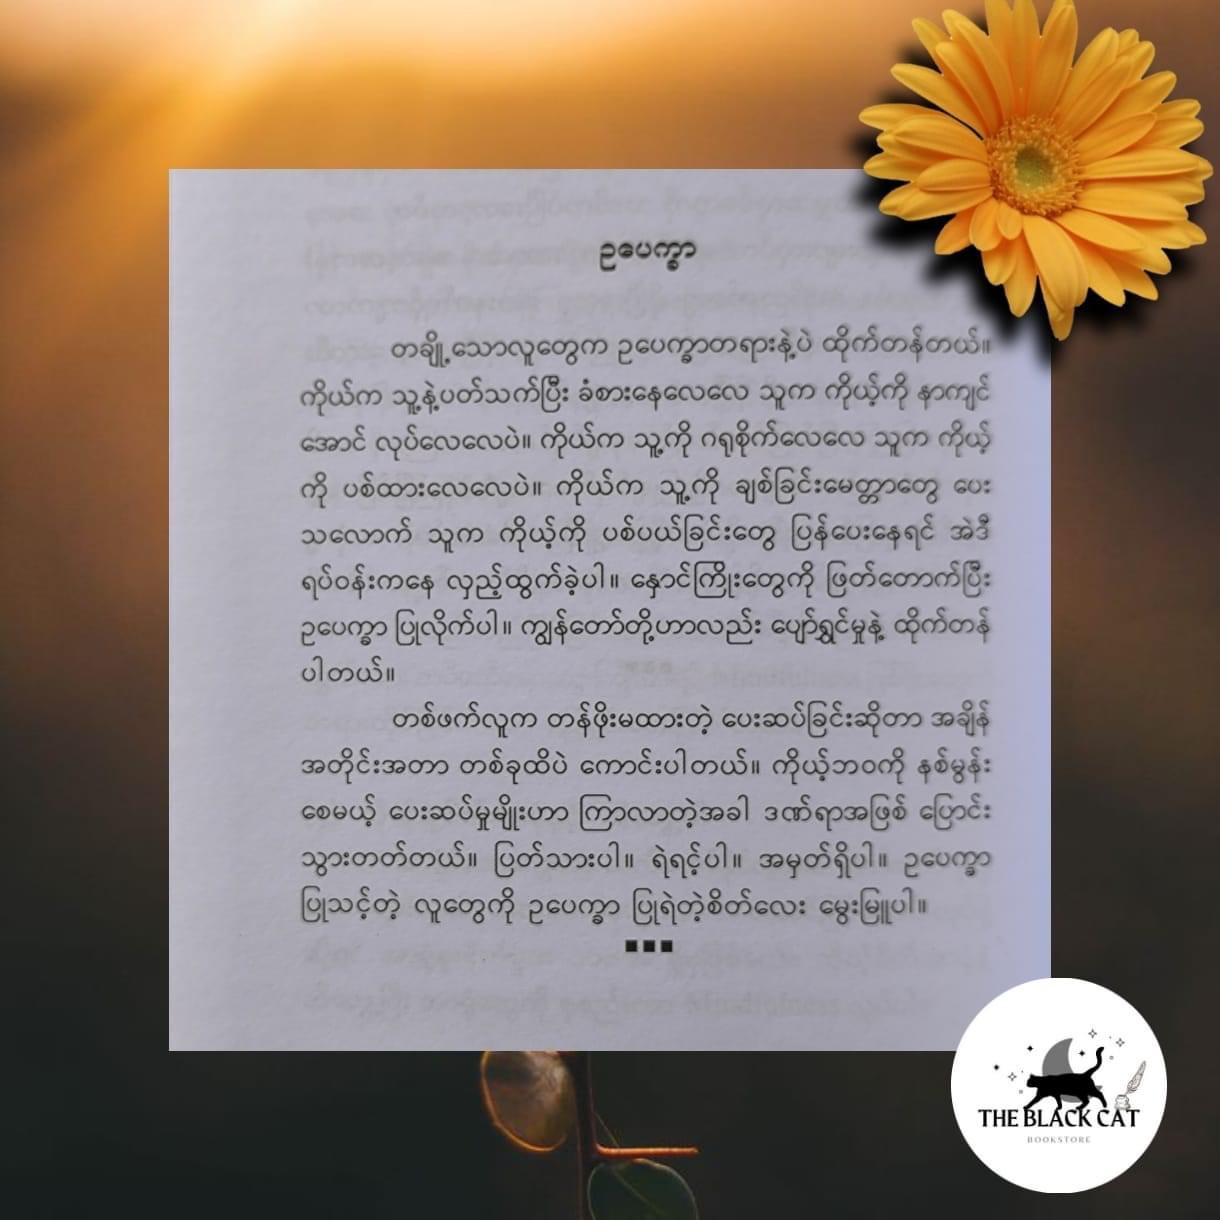 ဥပေက္ခာ
တချို့သောလူတွေက ဥပေက္ခာတရားနဲ့ပဲ ထိုက်တန်တယ်။
ကိုယ်က သူ့နဲ့ပတ်သက်ပြီး ခံစားနေလေလေ သူက ကိုယ့်ကို နာကျင်
အောင် လုပ်လေလေပဲ။ ကိုယ်က သူ့ကို ဂရုစိုက်လေလေ သူက ကိုယ့်
ကို ပစ်ထားလေလေပဲ။ ကိုယ်က သူ့ကို ချစ်ခြင်းမေတ္တာတွေ ပေး
သလောက် သူက ကိုယ့်ကို ပစ်ပယ်ခြင်းတွေ ပြန်ပေးနေရင် အဲဒီ
ရပ်ဝန်းကနေ လှည့်ထွက်ခဲ့ပါ။ နှောင်ကြိုးတွေကို ဖြတ်တောက်ပြီး
ဥပေက္ခာ ပြုလိုက်ပါ။ ကျွန်တော်တို့ဟာလည်း ပျော်ရွှင်မှုနဲ့ ထိုက်တန်
ပါတယ်။
တစ်ဖက်လူက တန်ဖိုးမထားတဲ့ ပေးဆပ်ခြင်းဆိုတာ အချိန်
အတိုင်းအတာ တစ်ခုထိပဲ ကောင်းပါတယ်။ ကိုယ့်ဘဝကို နစ်မွန်း
စေမယ့် ပေးဆပ်မှုမျိုးဟာ ကြာလာတဲ့အခါ ဒဏ်ရာအဖြစ် ပြောင်း
သွားတတ်တယ်။ ပြတ်သားပါ။ ရဲရင့်ပါ။ အမှတ်ရှိပါ။ ဥပေက္ခာ
ပြုသင့်တဲ့ လူတွေကို ဥပေက္ခာ ပြုရဲတဲ့စိတ်လေး မွေးမြူပါ။
THE BLACK CAT
BOOKSTORE